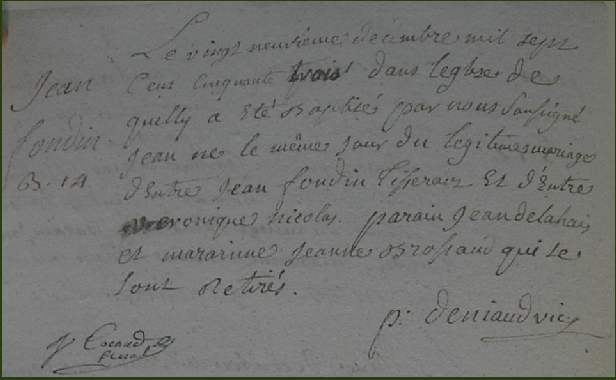 Jean
fondin
B. 14
Le vingt neuvieme decembre mil sept
Cent Cinquante trois dans leglise de
quilly a Eté Baptisé par nous Soussigné
Jean ne le même jour du legitime mariage
d'Entre Jean fondin tisserant Et d'Entre
veronique nicolas. parain Jean delahais
et marainne Jeanne Brossaud qui se
sont Retirés.
p. deniaud vic